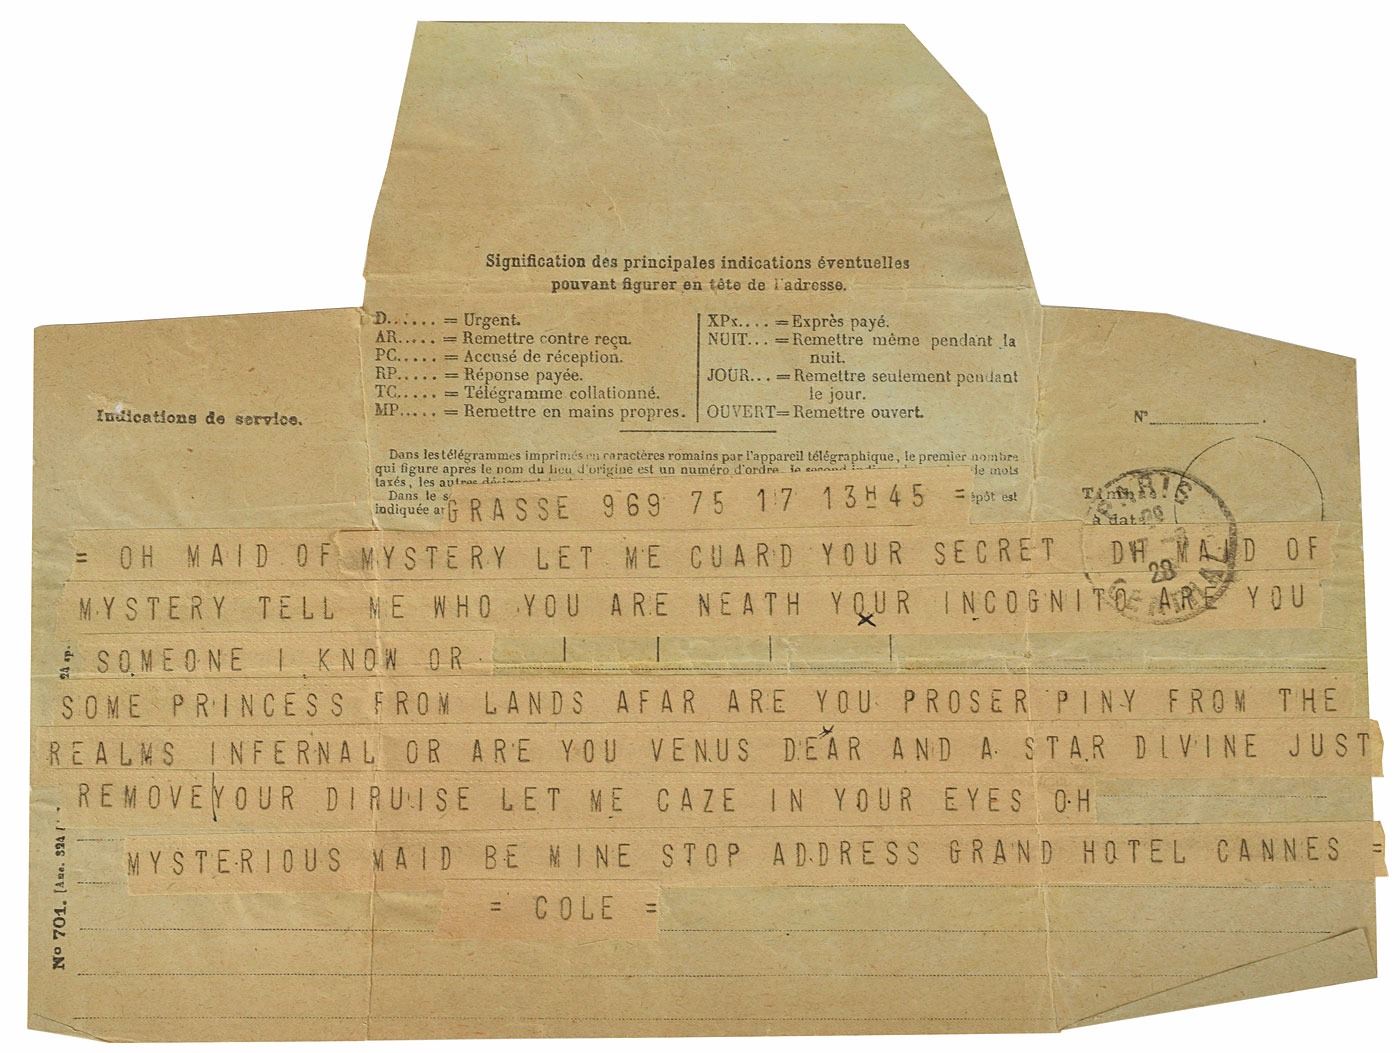 Signification des principales indications éventuelles
pouvant figurer en tête de l'adresse.
D...... = Urgent.
AR..... = Remettre contre reçu.
PC..... = Accusé de réception.
RP..... = Réponse payée.
TC..... = Télégramme collationné.
MP..... = Remettre en mains propres.
XPx.... = Exprès payé.
NUIT... = Remettre même pendant la
nuit.
JOUR... = Remettre seulement pendant
le jour.
OUVERT = Remettre ouvert.
Indications de service.
N°
Dans les télégrammes imprimés en caractères romains par l'appareil télégraphique, le premier nombre
qui figure après le nom du lieu d'origine est un numéro d'ordre, le second de mots
taxés, les autres
Dans le s épôt est
indiquée
Timbre
à date
PARIS
28
CENTRAL
GRASSE 969 75 17 13H45 =
= OH MAID OF MYSTERY LET ME CUARD YOUR SECRET DH MAID OF
MYSTERY TELL ME WHO YOU ARE NEATH YOUR INCOGNITO ARE YOU
SOMEONE I KNOW OR
SOME PRINCESS FROM LANDS AFAR ARE YOU PROSER PINY FROM THE
REALMS INFERNAL OR ARE YOU VENUS DEAR AND A STAR DIVINE JUST
REMOVE YOUR DIRUISE LET ME CAZE IN YOUR EYES OH
MYSTERIOUS MAID BE MINE STOP ADDRESS GRAND HOTEL CANNES =
= COLE =
24 sp.
N° 701. [Anc. 324